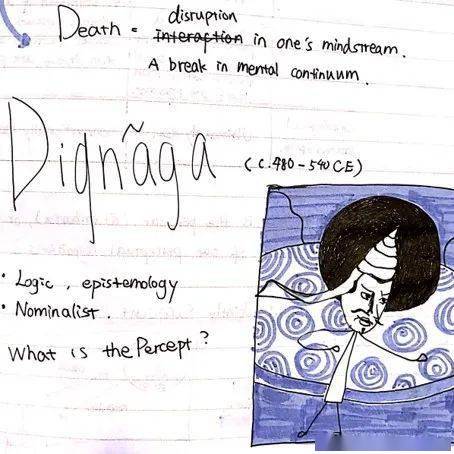 disruption
Death = Interaction in one's mindstream.
A break in mental continuum.
Digñāga
(c.480-540 CE)
• Logic, epistemology
• Nominalist.
What is the Percept?